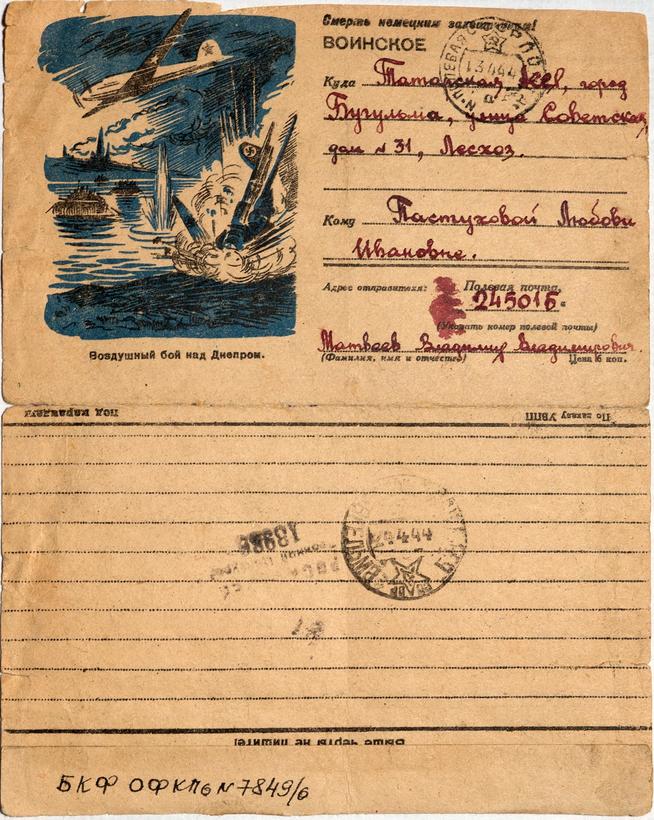 Смерть немецким захватчикам!
ВОИНСКОЕ
Куда Татарская АССР, город
Бугульма, улица Советская,
дом № 31, Лесхоз.
Кому Пастуховой Любови
Ивановне.
Адрес отправителя: Полевая почта,
24501Б
(Указать номер полевой почты)
Матвеев Владимир Владимирович.
(Фамилия, имя и отчество) Цена 15 коп.
Воздушный бой над Днепром.
По заказу УВПП
13.4.44
24.4.44
Выше черты не пишите!
БКФ ОФКП6 № 7849/6